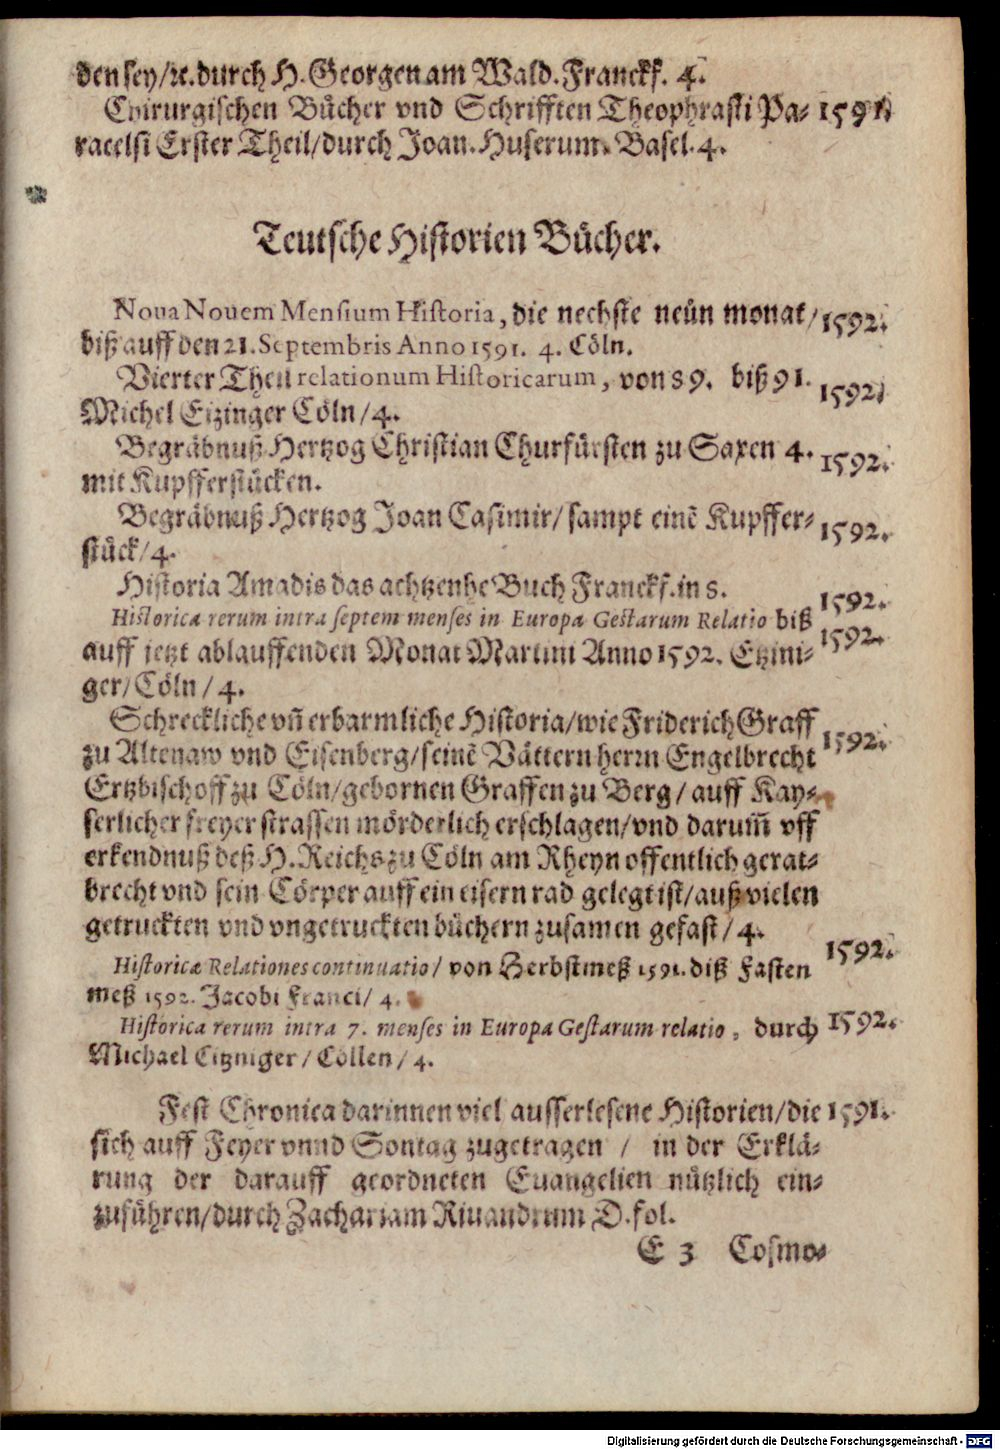 den sey/ꝛc. durch H. Georgen am Wald. Franckf. 4.
Chirurgischen Bücher vnd Schrifften Theophrasti Pa- 1591.
racelsi Erster Theil/durch Joan. Huserum. Basel. 4.
Teutsche Historien Bücher.
Noua Nouem Mensium Historia, die nechste neün monat/ 1592.
biß auff den 21. Septembris Anno 1591. 4. Cöln.
Vierter Theil relationum Historicarum, von 89. biß 91. 1592.
Michel Eizinger Cöln/4.
Begräbnuß Hertzog Christian Churfürsten zu Saxen 4. 1592.
mit Kupfferstücken.
Begräbnuß Hertzog Joan Casimir/ sampt einē Kupffer- 1592.
stück/4.
Historia Amadis das achtzenhe Buch Franckf. in 8. 1592.
Historicæ rerum intra septem menses in Europa Gestarum Relatio biß 1592.
auff jetzt ablauffenden Monat Martini Anno 1592. Etzini-
ger/Cöln/4.
Schreckliche vñ erbarmliche Historia/wie Friderich Graff 1592.
zu Altenaw vnd Eisenberg/seinē Vättern herrn Engelbrecht
Ertzbischoff zu Cöln/gebornen Graffen zu Berg/auff Kay-
serlicher freyer strassen mörderlich erschlagen/vnd darum̄ vff
erkendnuß deß H. Reichs zu Cöln am Rheyn offentlich gerat-
brecht vnd sein Cörper auff ein eisern rad gelegt ist/auß vielen
getruckten vnd vngetruckten büchern zusamen gefast/4.
Historicæ Relationes continuatio/ von Herbstmeß 1591. biß Fasten 1592.
meß 1592. Jacobi Franci/ 4.
Historica rerum intra 7. menses in Europa Gestarum relatio, durch 1592.
Michael Eitzniger/Cöllen/4.
Fest Chronica darinnen viel ausserlesene Historien/die 1591.
sich auff Feyer vnnd Sontag zugetragen / in der Erklä-
rung der darauff geordneten Euangelien nützlich ein-
zuführen/durch Zachariam Riuandrum D. fol.
E 3 Cosmo-
Digitalisierung gefördert durch die Deutsche Forschungsgemeinschaft - DFG